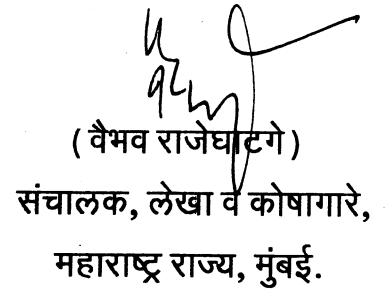 ( वैभव राजेघाटगे )
संचालक, लेखा व कोषागारे,
महाराष्ट्र राज्य, मुंबई.